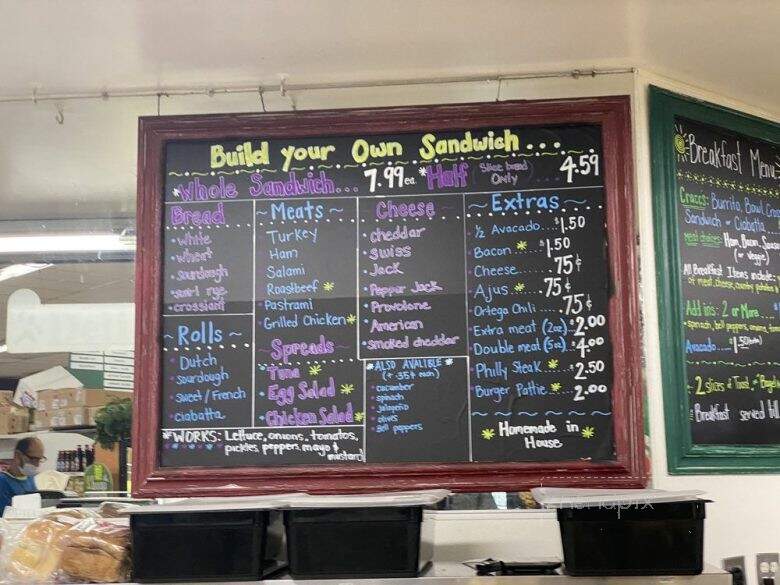 Build your Own Sandwich...
*Whole Sandwich... 7.99 ea. *Half Slice bread Only 4.59
Bread
• White
• Wheat
• Sourdough
• Swirl rye
• crossiant
~ Rolls ~
• Dutch
• Sourdough
• Sweet / French
• Ciabatta
~ Meats ~
• Turkey
• Ham
• Salami
• Roastbeef *
• Pastrami
• Grilled Chicken *
Spreads
• Tuna *
• Egg Salad *
• Chicken Salad *
Cheese
• cheddar
• swiss
• Jack
• Pepper Jack
• Provolone
• American
• smoked cheddar
*ALSO AVALIBLE*
(+.35¢ each)
• cucumber
• spinach
• Jalapeño
• olives
• Bell peppers
~ Extras ~
• ½ Avocado...$1.50
• Bacon * ...$1.50
• Cheese....75¢
• Ajus * ...75¢
• Ortego Chili ....75¢
• Extra meat (2oz)..$2.00
• Double meat (5oz)..$4.00
• Philly Steak * ..$2.50
• Burger Pattie * ... 2.00
* Homemade in *
House
*WORKS: Lettuce, onions, tomatos,
pickles, peppers, mayo &
mustard
Breakfast Menu
Burrito, Bowl,
Sandwich or Ciabatta
meat choices: Ham, Bacon,
(or veggie)
All Breakfast Items include
meat, cheese, country potatoes
Add ins: 2 or More
• spinach, bell peppers, onions,
Avocado.....$1.50
~ 2 slices of Toast,
Breakfast served till